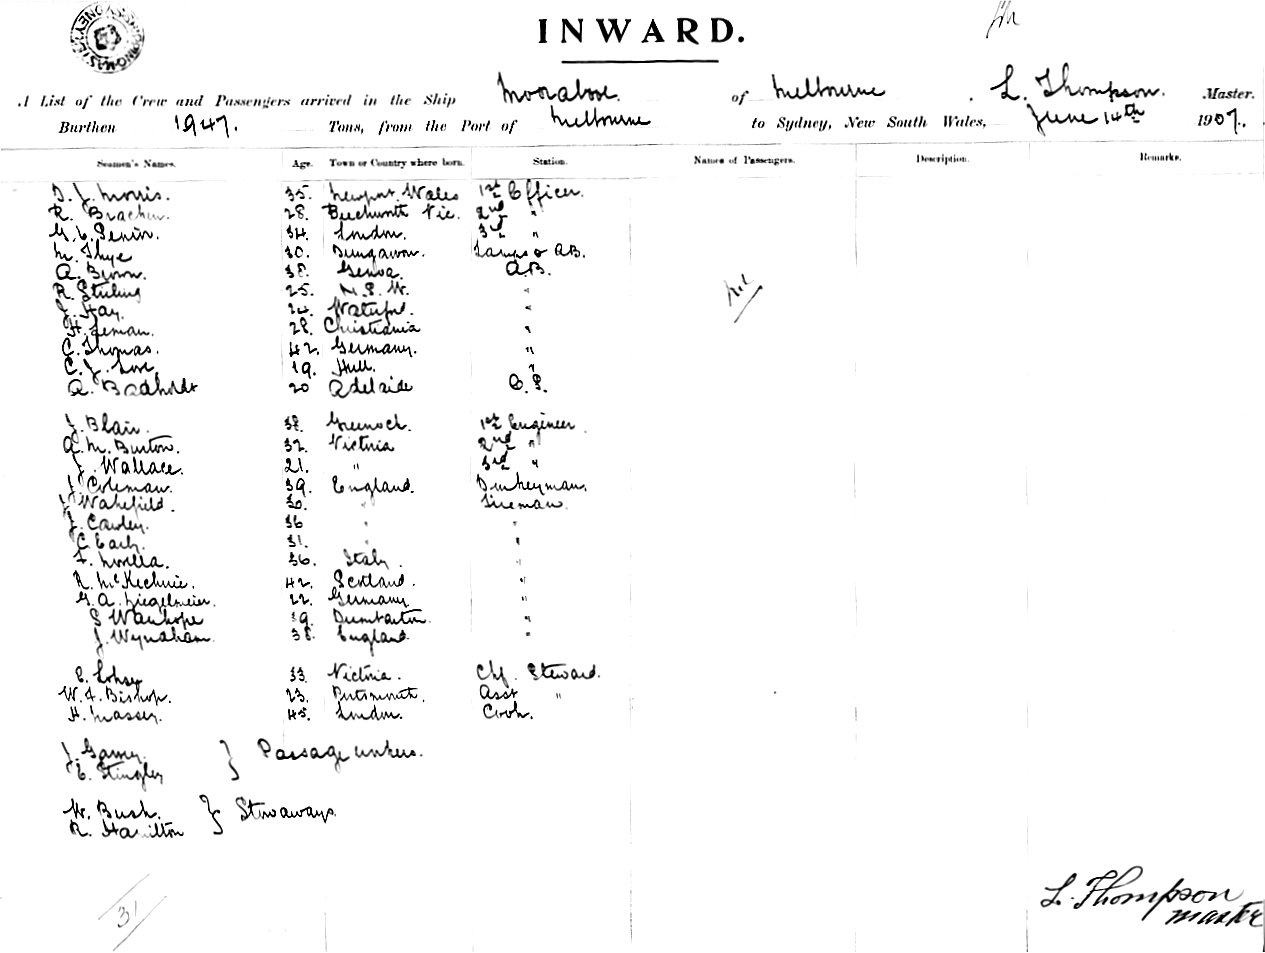 INWARD.
A List of the Crew and Passengers arrived in the Ship Moorabool. of Melbourne. L. Thompson. Master.
Burthen 1947. Tons, from the Port of Melbourne to Sydney, New South Wales, June 14th 1907.
Seamen's Names. Age. Town or Country where born. Station. Names of Passengers. Description. Remarks.
D. J. Morris. 35. Newport. Wales 1st Officer.
R. Bracken. 28. Beechworth Vic. 2nd "
34. London. 3rd "
M. Thye 30. Dungavon. Lamps & A.B.
A. Brown. 38. Genoa. A.B.
R. Sterling 25. N. S. W. "
J. Hay. 24. Waterfd. "
H. Leman. 28. Christiania "
C. Thomas. 42. Germany. "
C. J. Love. 19. Hull. "
A. Badholdt 20 Adelaide O. S.
J. Blair. 38. Greenock. 1st Engineer
A. M. Burton. 32. Victoria 2nd "
J. Wallace. 21. " 3rd "
J. Coleman. 39. England. Donkeyman.
J. Wakefield. 30. " Fireman.
J. Cawley. 36 " "
C. Early. 31. " "
F. Morella. 36. Italy. "
R. McKechnie. 42. Scotland. "
G. A. Ziegelmeier. 22. Germany "
S Wanhope 39. Dumbarton. "
J. Wyndham. 38. England. "
nil
E. Lohsy 33. Victoria. Chf. Steward.
W. F. Bishop. 23. Portsmouth. Asst "
H. Massey. 45. London. Cook.
J. Garvey. } Passage workers.
E. Stingley
W. Bush. } Stowaways.
R. Hamilton
31
L. Thompson
master